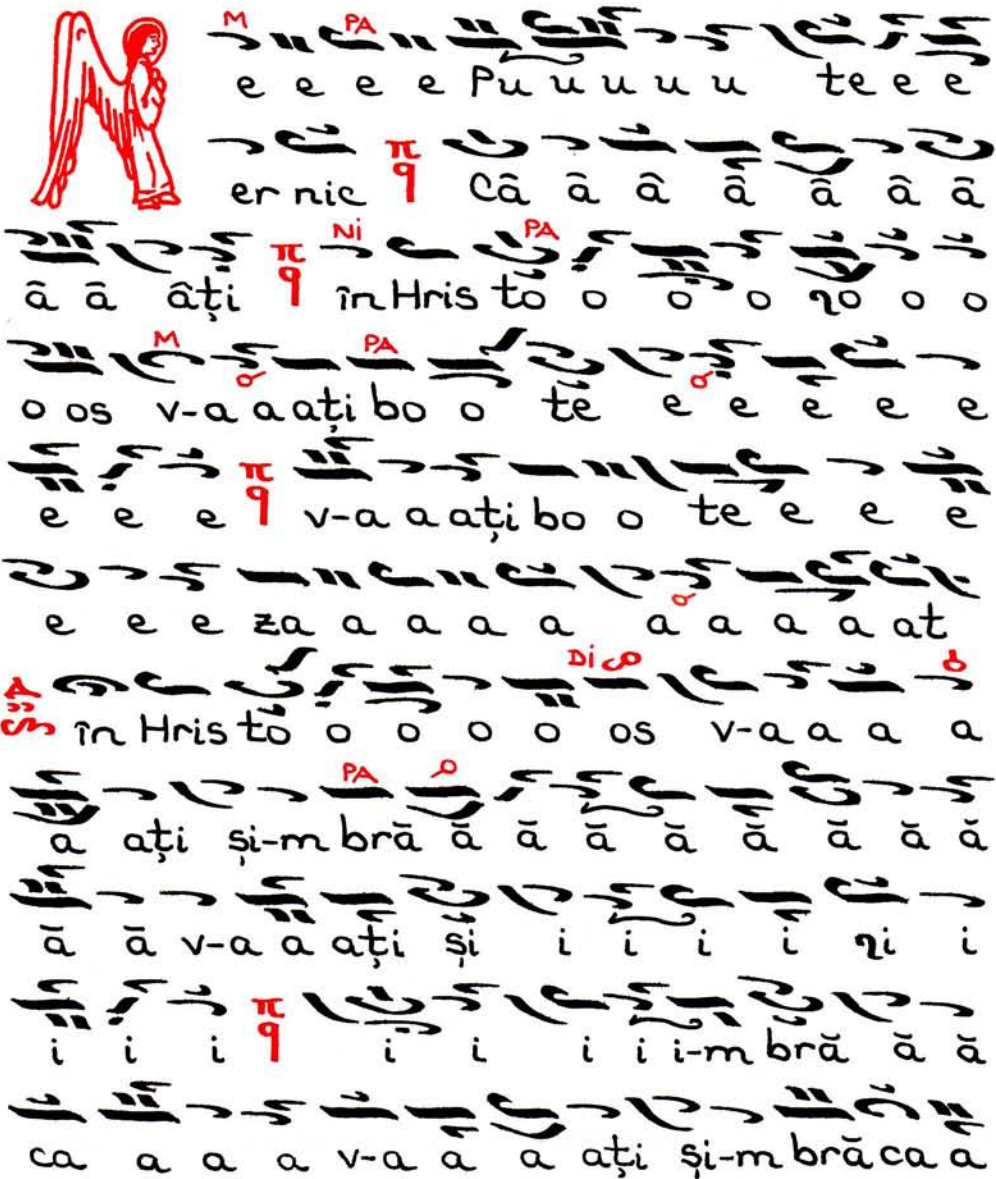 M PA
e e e e Pu u u u u te e e
π q
er nic Câ â â â â â â
π q Ni PA
â â âți în Hris to o o o ηo o o
M PA
o os v-a a ați bo o te e e e e e
π q
e e e v-a a ați bo o te e e e
e e e za a a a a a a a a at
Di
în Hris to o o o o os v-a a a a
PA
a ați și-m bră ă ă ă ă ă ă ă ă
ă ă v-a a ați și i i i i ηi i
π q
i i i i i i i i-m bră ă ă
ca a a a v-a a a ați și-m bră ca a